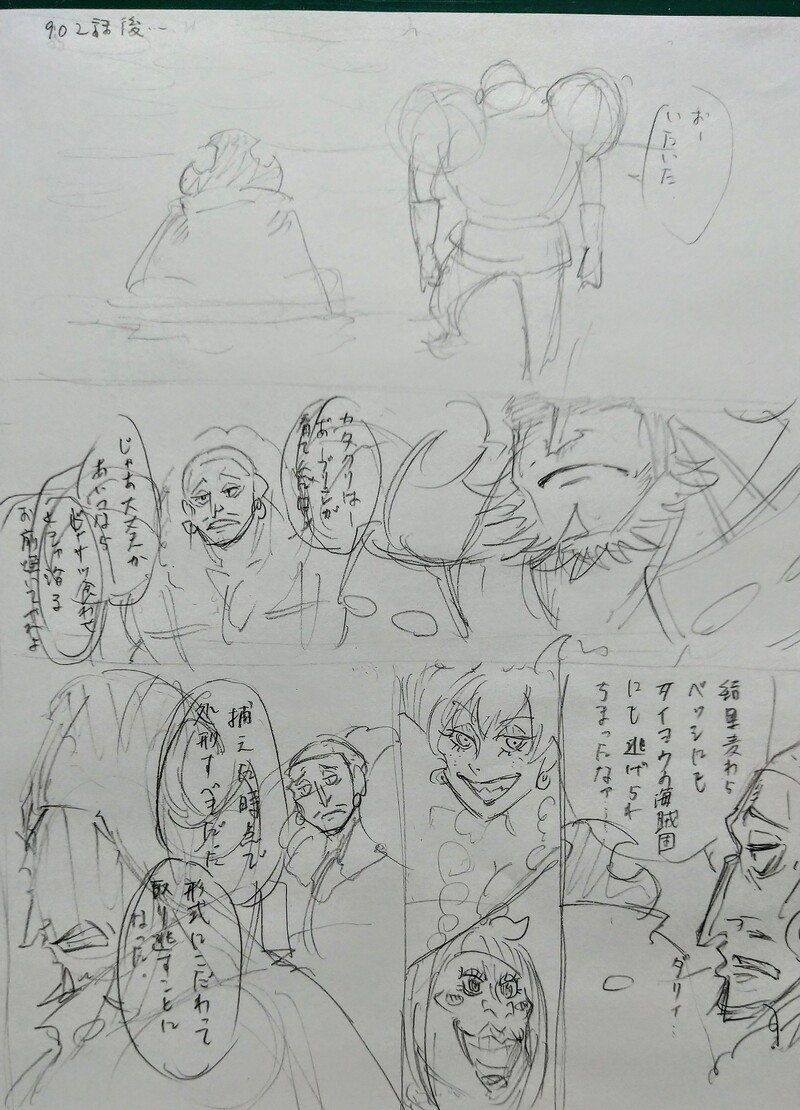 902話後…
おー
いたいた
カタクリはー
お
プリンが
じゃあ大丈夫か
あいつなら
ドーナツ食わせ
ときゃ治る
結果麦わら
ベッジにも
タイヨウの海賊団
にも逃げられ
ちまったなァ…
ダリィ…
捕えた時点で
処刑すべきだった
形式にこだわって
取り逃すことに
なった.